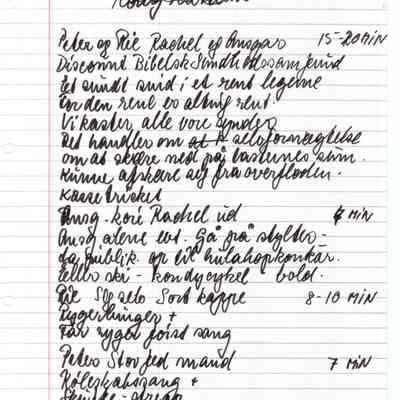 Peter og Pie Rachel og Ansgar 15-20 MIN
Discount Bibelsk Sundhedssamfund
Et sundt sind i et rent legeme
For den rene er alting rent.
Vi kaster alle vore synder
Det handler om at selvfornægtelse
om at skære ned på lasternes sum.
Kunne afskære sig fra overfloden.
Kassetricket
Ansg. kører Rachel ud 4 MIN
Ansg alene evt. Gå på stylter -
da publik. op til hulahopkonkur.
Eller ski - kondicykel bold.
Pie Sort kappe 8-10 MIN
+
Far ryger først sang
Peter Stor fed mand 7 MIN
Køleskabssang +